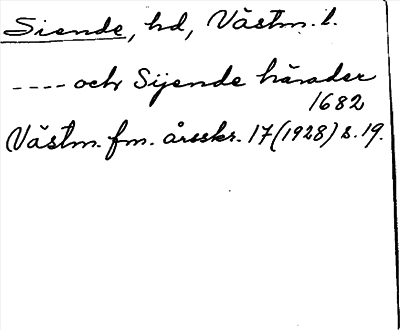 Siende, hd, Västm. l.
---- och Sijende härader
1682
Västm. fm. årsskr. 17 (1928) s. 19.